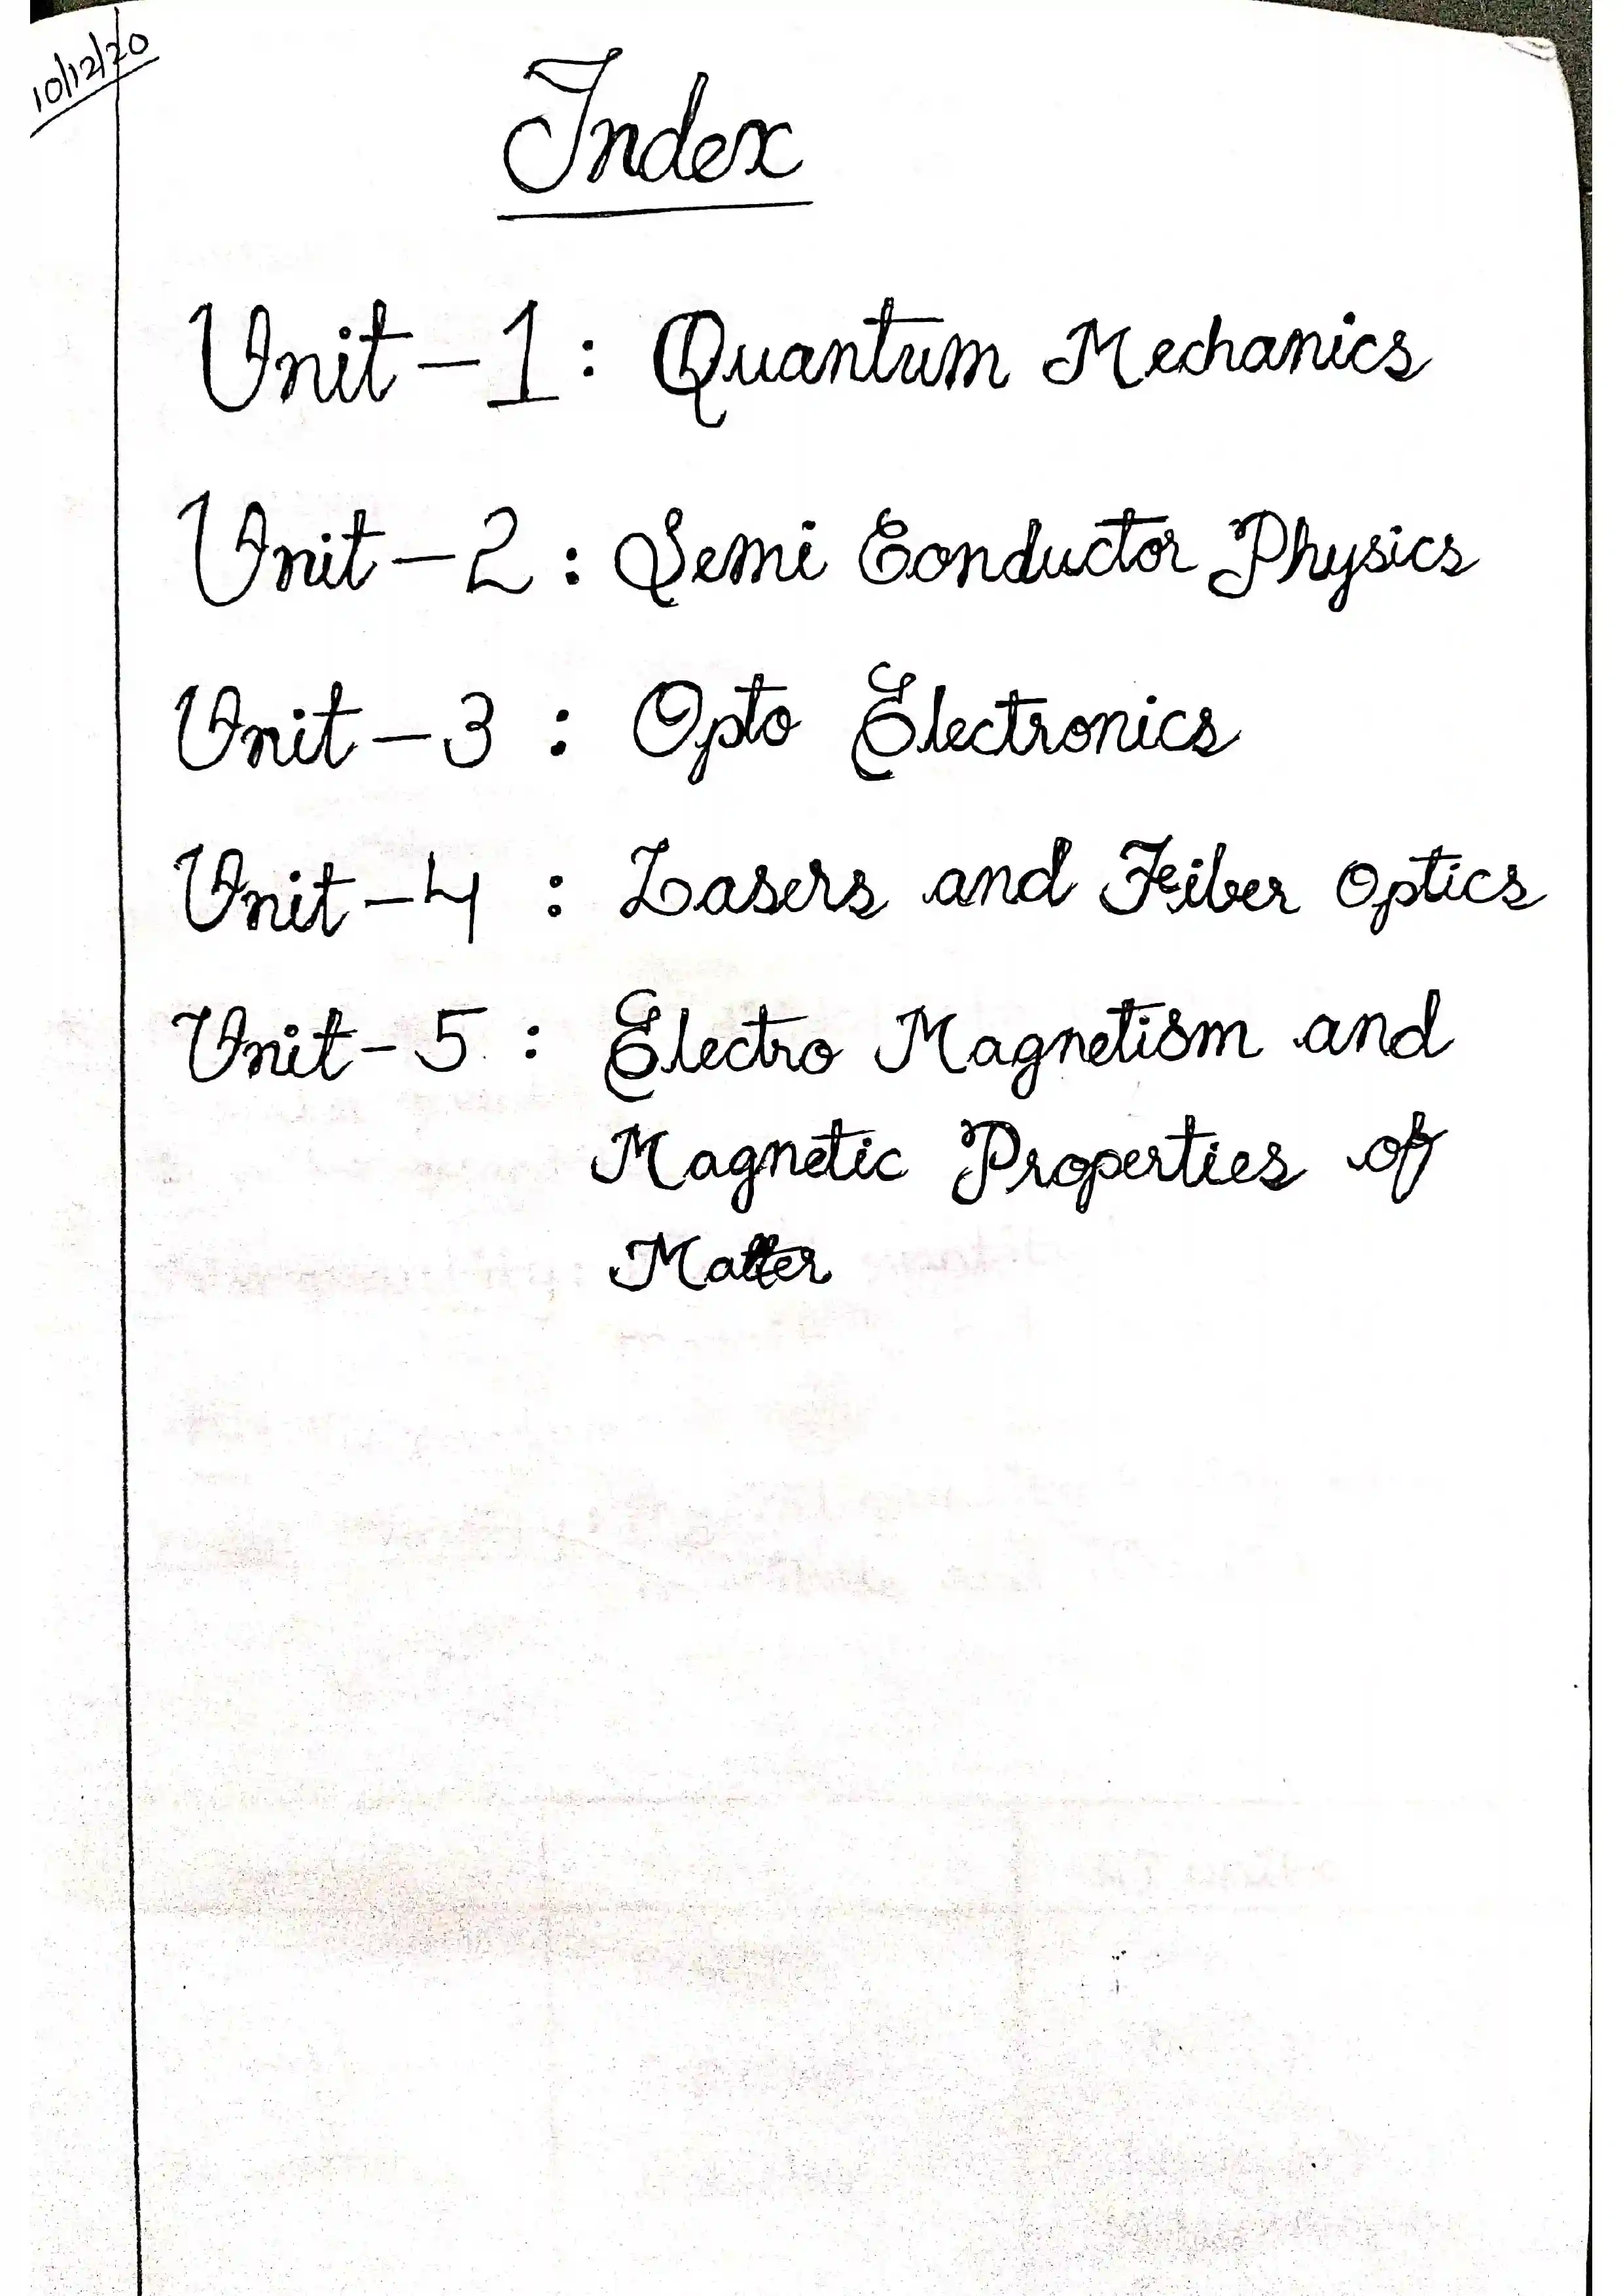 10/12/20
Index
Unit-1: Quantum Mechanics
Unit-2: Semi Conductor Physics
Unit-3: Opto Electronics
Unit-4: Lasers and Feiber Optics
Unit-5: Electro Magnetism and
Magnetic Properties of
Matter